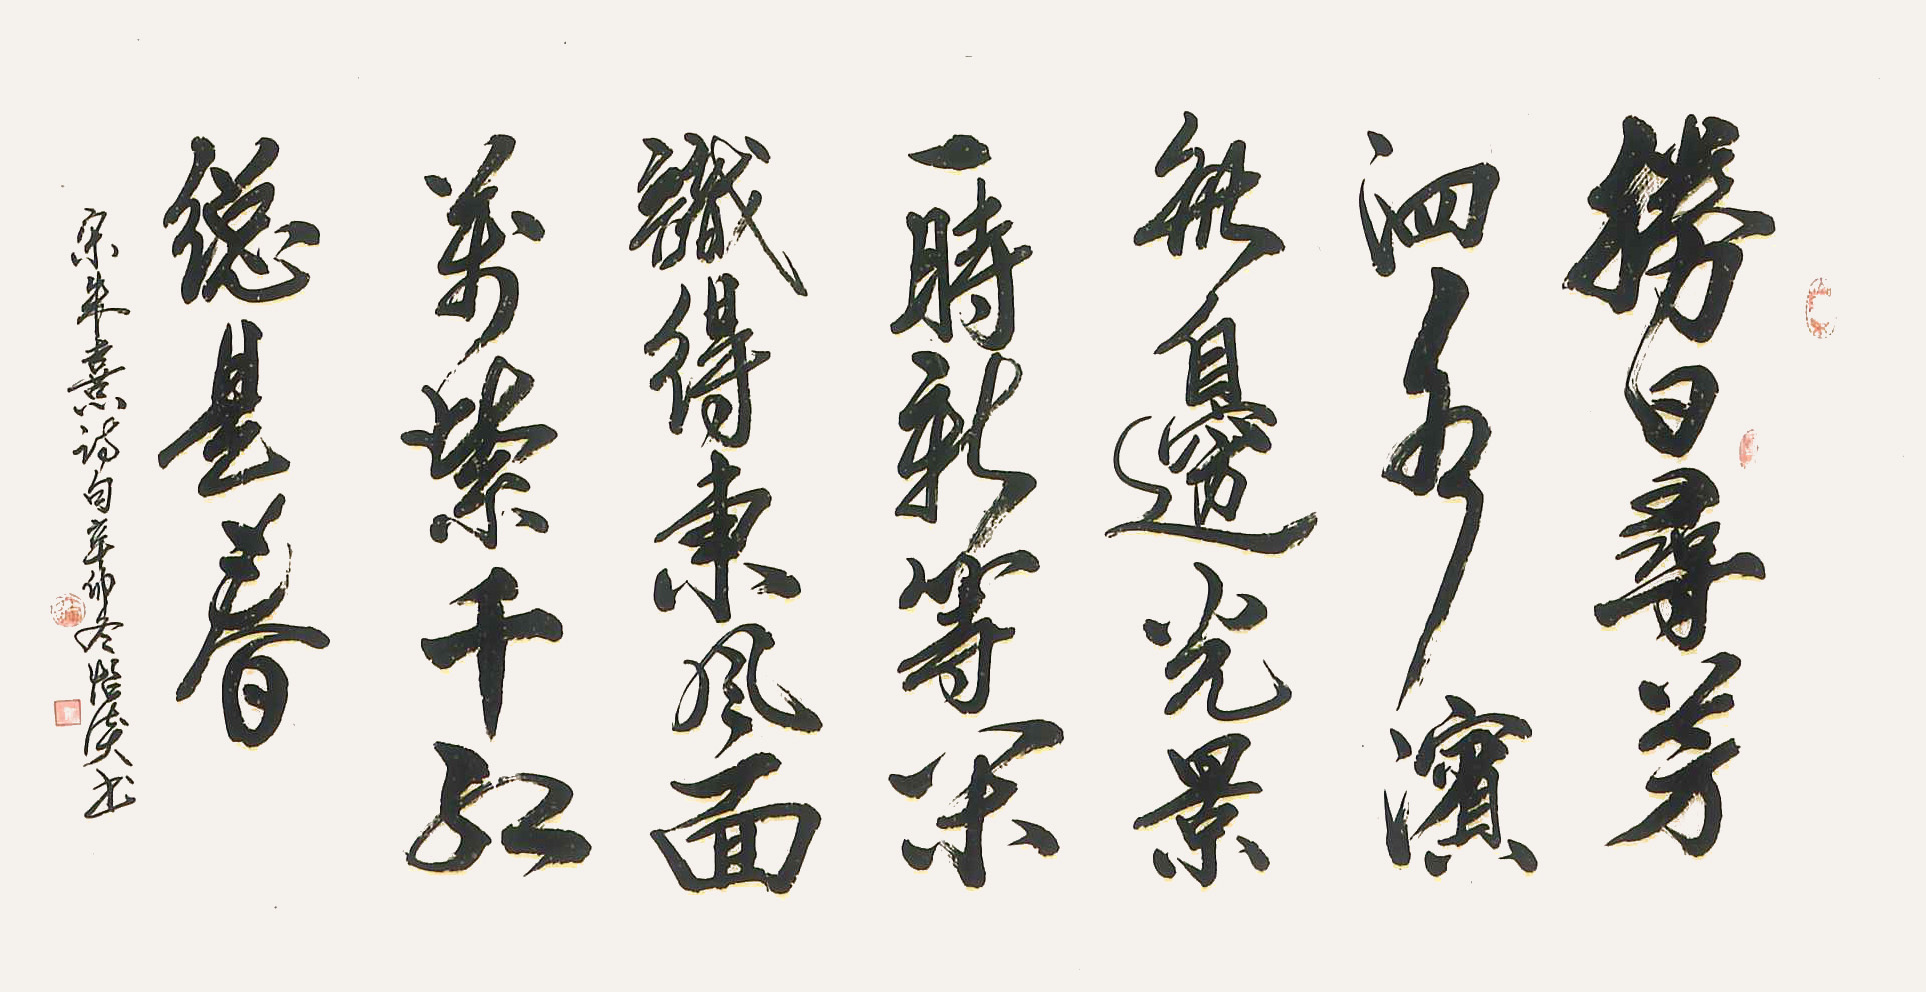 勝日尋芳
泗水濱
無邊光景
一時新等閑
識得東風面
萬紫千紅
總是春
宋朱熹詩句辛卯冬書